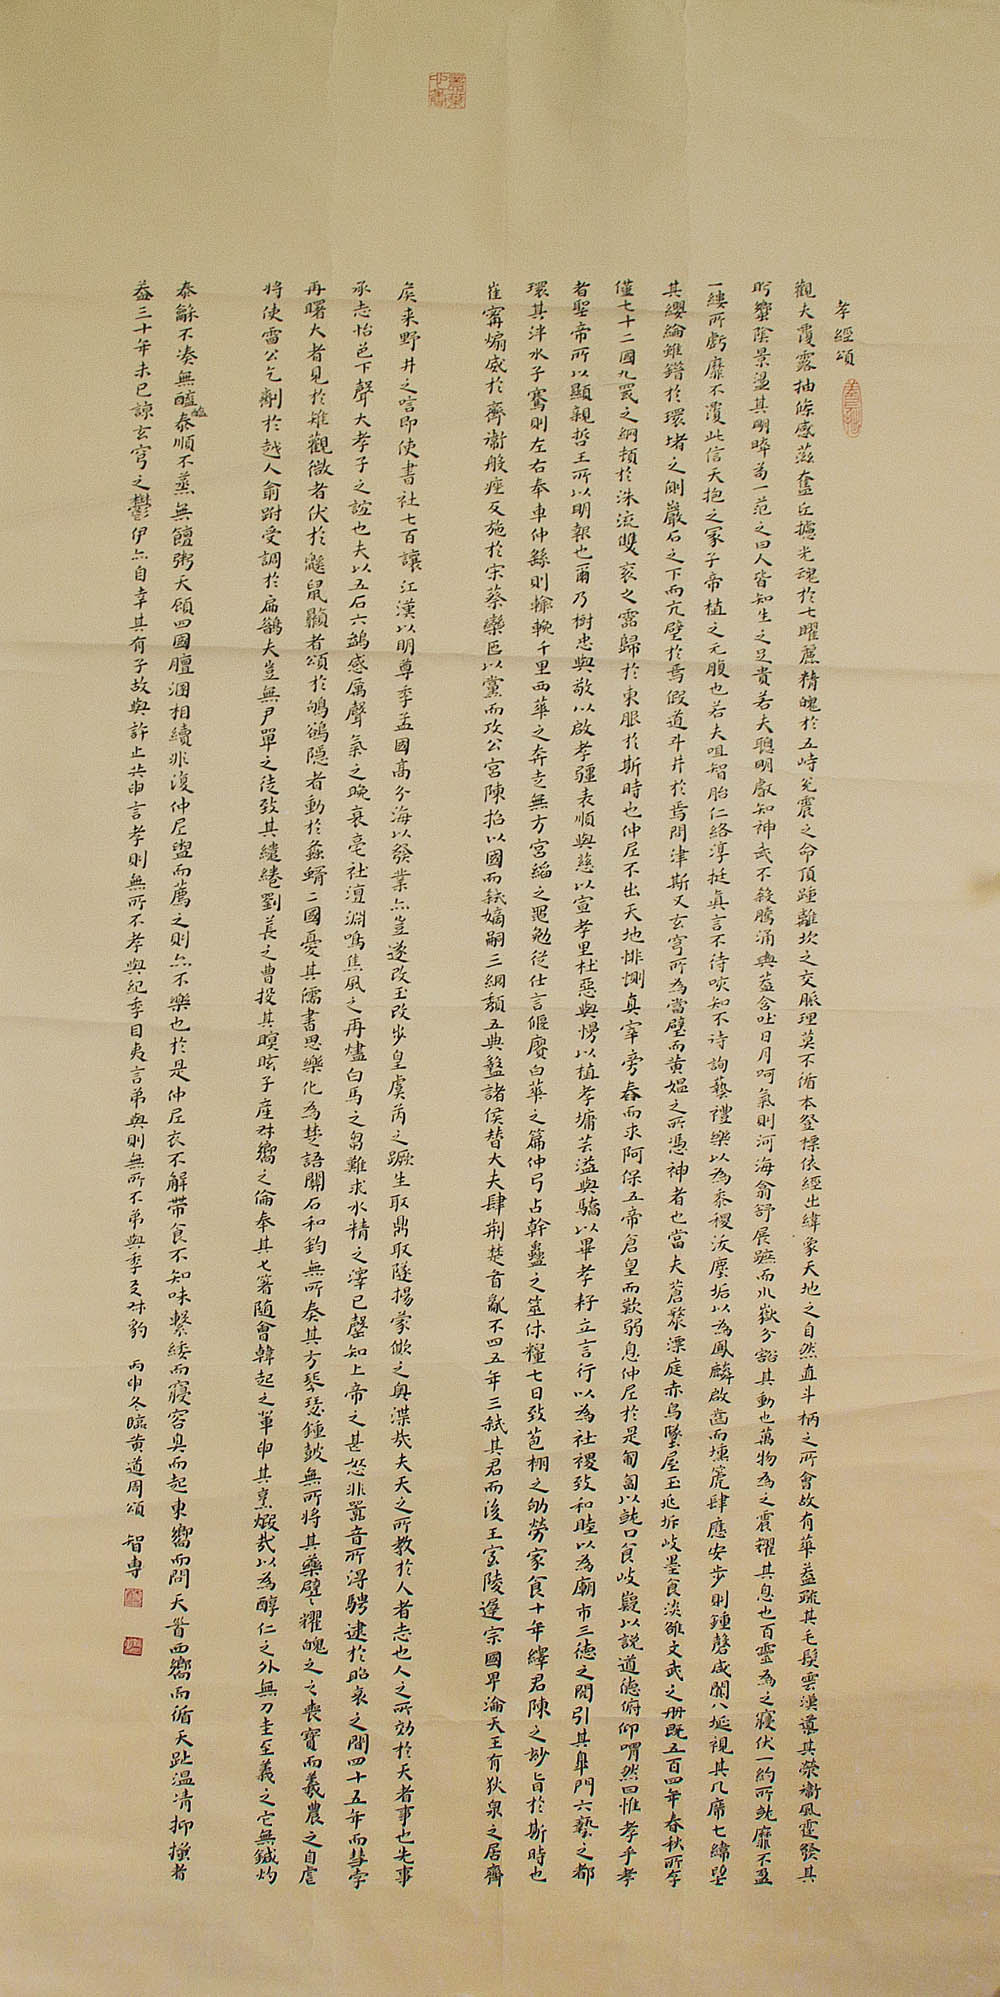 孝經頌
觀夫覆露抽條感茲奎丘攄光魂於七曜麃精魄於五峙兌震之命頂踵離坎之交脈理莫不循本登標依經出緯象天地之自然直斗柄之所會故有華蓋疏其毛髮雲漢道其榮衛風霆發其
蠻陰景盪其明啐為一范之曰人皆知生之足貴若夫聰明叡知神武不殺騰涌與蓋含吐日月呵氣則河海翕舒展蹠而山嶽分豁其動也萬物為之震耀其息也百靈為之寢伏一約所虧靡不盈
一縷所虧靡不覆此信天抱之冢子帝植之元腹也若夫咀智胎仁絡淳挺真言不待咳知不待詢藝禮樂以為黍稷泼塵垢以為鳳麟啟齒而壎箎肆應安步則鍾磬咸開八埏視其几席七緯望
其纓綸錐鐕於環堵之側巖石之下而亢壁於焉假道斗井於焉問津斯又玄穹所為當璧而黄媪之所憑神者也當夫蒼漦漂庭赤烏墜屋玉兆坼岐墨食淡雒文武之册既五百四年春秋所存
僅七十二國九罭之綱頓於洙流雙衮之露歸於東服於斯時也仲尼不出天地悱惻真宰旁舂而求阿保五帝倉皇而歎弱息仲尼於是匍匐以就口食岐嶷以説道德俯仰喟然曰惟孝乎孝
者聖帝所以顯親哲王所以明報也爾乃樹忠與敬以啟孝疆表順與慈以宣孝里杜惡與慢以植孝墉芸溢與驕以畢孝耔立言行以為社稷致和睦以為廟市三德之閒引其皐門六藝之都
環其泮水子騫則左右奉車仲繇則輸輓千里西華之奔走無方宮縚之黽勉從仕言偃賡白華之篇仲弓占幹蠱之筮休糧七日致苞栩之劬勞家食十年繹君陳之妙旨於斯時也
崔甯煽威於齊衞般痤反施於宋蔡欒邑以黨而攻公宮陳招以國而弒嫡嗣三綱頽五典盭諸侯替大夫肆荆楚首亂不四五年三弒其君而後王室陵遲宗國卑淪天王有狄泉之居齊
矦来野井之唁即使書社七百讓江漢以明尊季孟國高分海以發業亦豈遂改玉改步皇虞芮之蹶生取鼎取隧揚蒙僛之輿渫哉夫天之所教於人者志也人之所効於天者事也先事
承志怡色下聲大孝子之誼也夫以五石六鷁感厲聲氣之晚衰亳社澶淵鳴焦風之再燼白馬之芻難求水精之澤已罄知上帝之甚怒非嚣音所淂騁逮於昭哀之間四十五年而彗孛
再曙大者見於雉觀微者伏於鼷鼠顯者頌於鴝鵒隱者動於螽蝑二國憂其濡書思樂化為楚語關石和鈞無所奏其方琴瑟鍾鼓無所將其藥躄躍魄之之喪寶而義農之自虐
将使雷公乞劑於越人俞跗受調於扁鵲夫豈無尹單之徒致其繾綣劉萇之曹投其瞑眩子產叔嚮之倫奉其匕箸隨會韓起之輩申其烹煅哉以為醇仁之外無刀圭至義之它無鍼灼
泰龢不凑無醢醢泰順不蒸無饘粥天顧四國膻溷相續非復仲尼盥而薦之則亦不樂也於是仲尼衣不解帶食不知味繫緌而寢容臭而起東嚮而問天暋西嚮而循天趾温凊抑搔者
蓋三十年未已諒玄穹之鬱伊亦自幸其有子故與許止共申言孝則無所不孝與紀季目夷言弟與則無所不弟與季友叔豹 丙申冬臨黄道周頌 智專